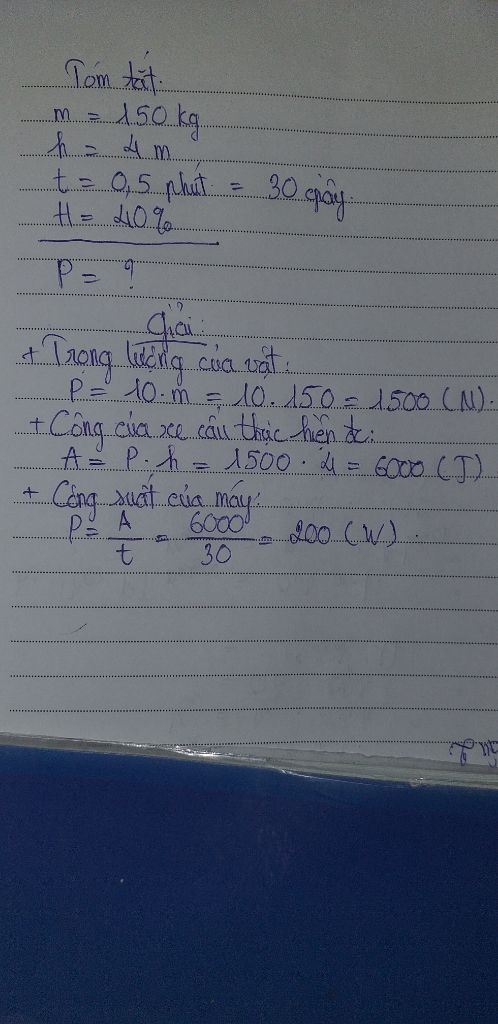 Tóm tắt.
m = 150 kg
h = 4 m
t = 0,5 phút = 30 giây.
H = 40%
P = ?
Giải:
+ Trọng lượng của vật:
P = 10.m = 10.150 = 1500 (N).
+ Công của xe cẩu thực hiện đc:
A = P.h = 1500.4 = 6000 (J)
+ Công suất của máy:
P = A/t = 6000/30 = 200 (W).